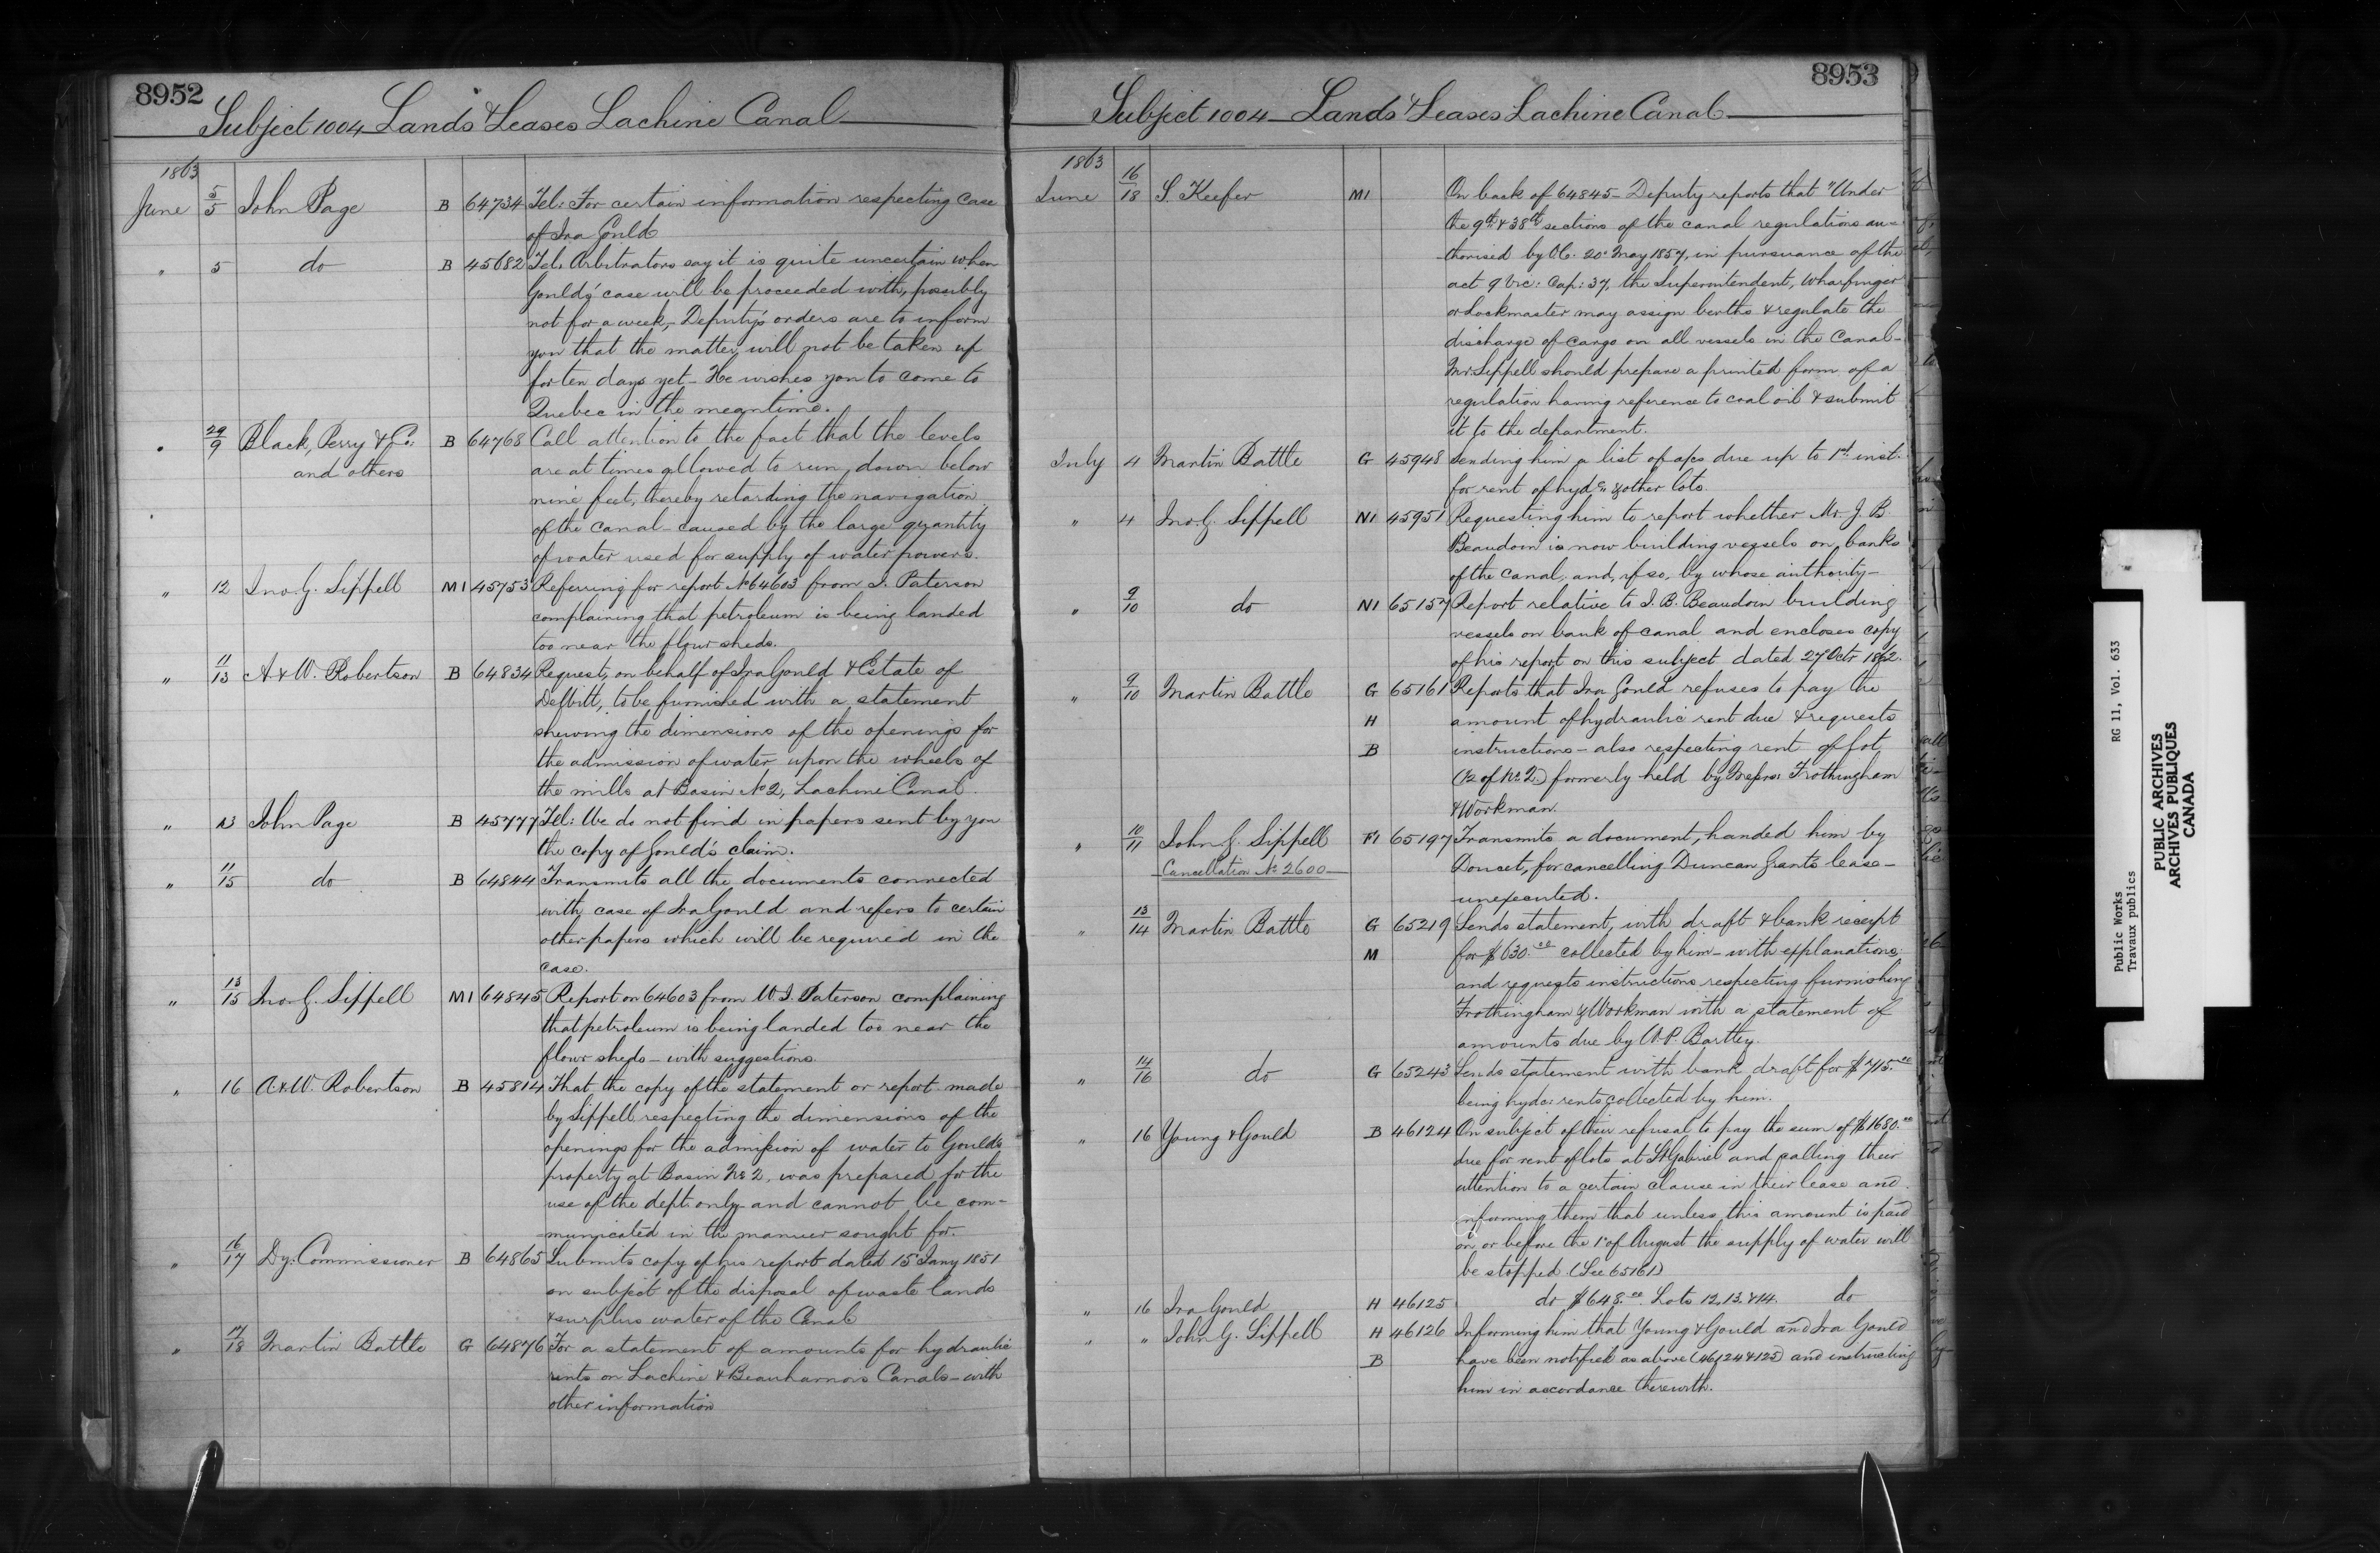 8952
Subject 1004 Lands & Leases Lachine Canal
1863
June 5/5 John Page B 64734 Tel: For certain information respecting case
of Ira Gould
" 5 do B 45682 Tel: Arbitrators say it is quite uncertain when
Gould's case will be proceeded with, possibly
not for a week, - Deputy's orders are to inform
you that the matter will not be taken up
for ten days yet - He wishes you to come to
Quebec in the meantime.
" 29/9 Black, Perry & Co: B 64768 Call attention to the fact that the levels
and others are at times allowed to run down below
nine feet, thereby retarding the navigation
of the canal - caused by the large quantity
of water used for supply of water powers.
" 12 Jno. G. Sippell M1 45753 Referring for report No 64603 from J. Paterson
complaining that petroleum is being landed
too near the flour sheds.
" 11/13 A & W. Robertson B 64834 Request, on behalf of Ira Gould & Estate of
DeWitt, to be furnished with a statement
shewing the dimensions of the openings for
the admission of water upon the wheels of
the mills at Basin No 2, Lachine Canal.
" 13 John Page B 45777 Tel: We do not find in papers sent by you
the copy of Gould's claim.
" 11/15 do B 64844 Transmits all the documents connected
with case of Ira Gould and refers to certain
other papers which will be required in the
case.
" 13/15 Jno. G. Sippell M1 64845 Report on 64603 from W. J. Paterson complaining
that petroleum is being landed too near the
flour sheds - with suggestions.
" 16 A. & W. Robertson B 45814 That the copy of the statement or report made
by Sippell respecting the dimensions of the
openings for the admission of water to Gould's
property at Basin No 2, was prepared for the
use of the dept. only and cannot be com-
-municated in the manner sought for.
" 16/17 Dy: Commissioner B 64865 Submits copy of his report dated 15 Jany 1851
on subject of the disposal of waste lands
& surplus water of the Canal
" 17/18 Martin Battle G 64876 For a statement of amounts for hydraulic
rents on Lachine & Beauharnois Canals - with
other information
8953
Subject 1004 - Lands & Leases Lachine Canal
1863
June 16/18 S. Keefer M1 On back of 64845 - Deputy reports that "Under
the 9th & 38th sections of the canal regulations au-
-thorised by O.C. 20 May 1857, in pursuance of the
act 9 Vic: Cap: 37, the Superintendent, Wharfinger
or Lockmaster may assign berths & regulate the
discharge of cargo on all vessels in the Canal -
Mr. Sippell should prepare a printed form of a
regulation having reference to coal oil & submit
it to the department.
July 4 Martin Battle G 45948 Sending him a list of a/cs due up to 1st inst.
for rent of hydc. & other lots.
" 4 Jno. G. Sippell N1 45951 Requesting him to report whether Mr. J. B.
Beaudoin is now building vessels on banks
of the canal, and, if so, by whose authority -
" 9/10 do N1 65157 Report relative to J. B. Beaudoin building
vessels on bank of canal and encloses copy
of his report on this subject dated 27 Octr 1862.
" 9/10 Martin Battle G 65161 Reports that Ira Gould refuses to pay the
H amount of hydraulic rent due & requests
B instructions - also respecting rent of lot
(½ of No 2.) formerly held by Messrs Frothingham
& Workman.
" 10/11 John G. Sippell F1 65197 Transmits a document, handed him by
Cancellation No 2600 Doucet, for cancelling Duncan Grant's lease -
unexecuted.
" 13/14 Martin Battle G 65219 Sends statement, with draft & bank receipt
M for $630.00 collected by him - with explanations;
and requests instructions respecting furnishing
Frothingham & Workman with a statement of
amounts due by W. P. Bartley.
" 14/16 do G 65243 Sends statement with bank draft for $715.00
being hydc: rents collected by him.
" 16 Young & Gould B 46124 On subject of their refusal to pay the sum of $1680.00
due for rent of lots at St Gabriel and calling their
attention to a certain clause in their lease and
informing them that unless this amount is paid
on or before the 1st of August the supply of water will
be stopped. (See 65161)
" 16 Ira Gould H 46125 do $648.00. Lots 12, 13, & 14. do
" " John G. Sippell H 46126 Informing him that Young & Gould and Ira Gould
B have been notified as above (46124 & 125) and instructing
him in accordance therewith.
Public Works RG 11, Vol. 633
Travaux publics
PUBLIC ARCHIVES
ARCHIVES PUBLIQUES
CANADA